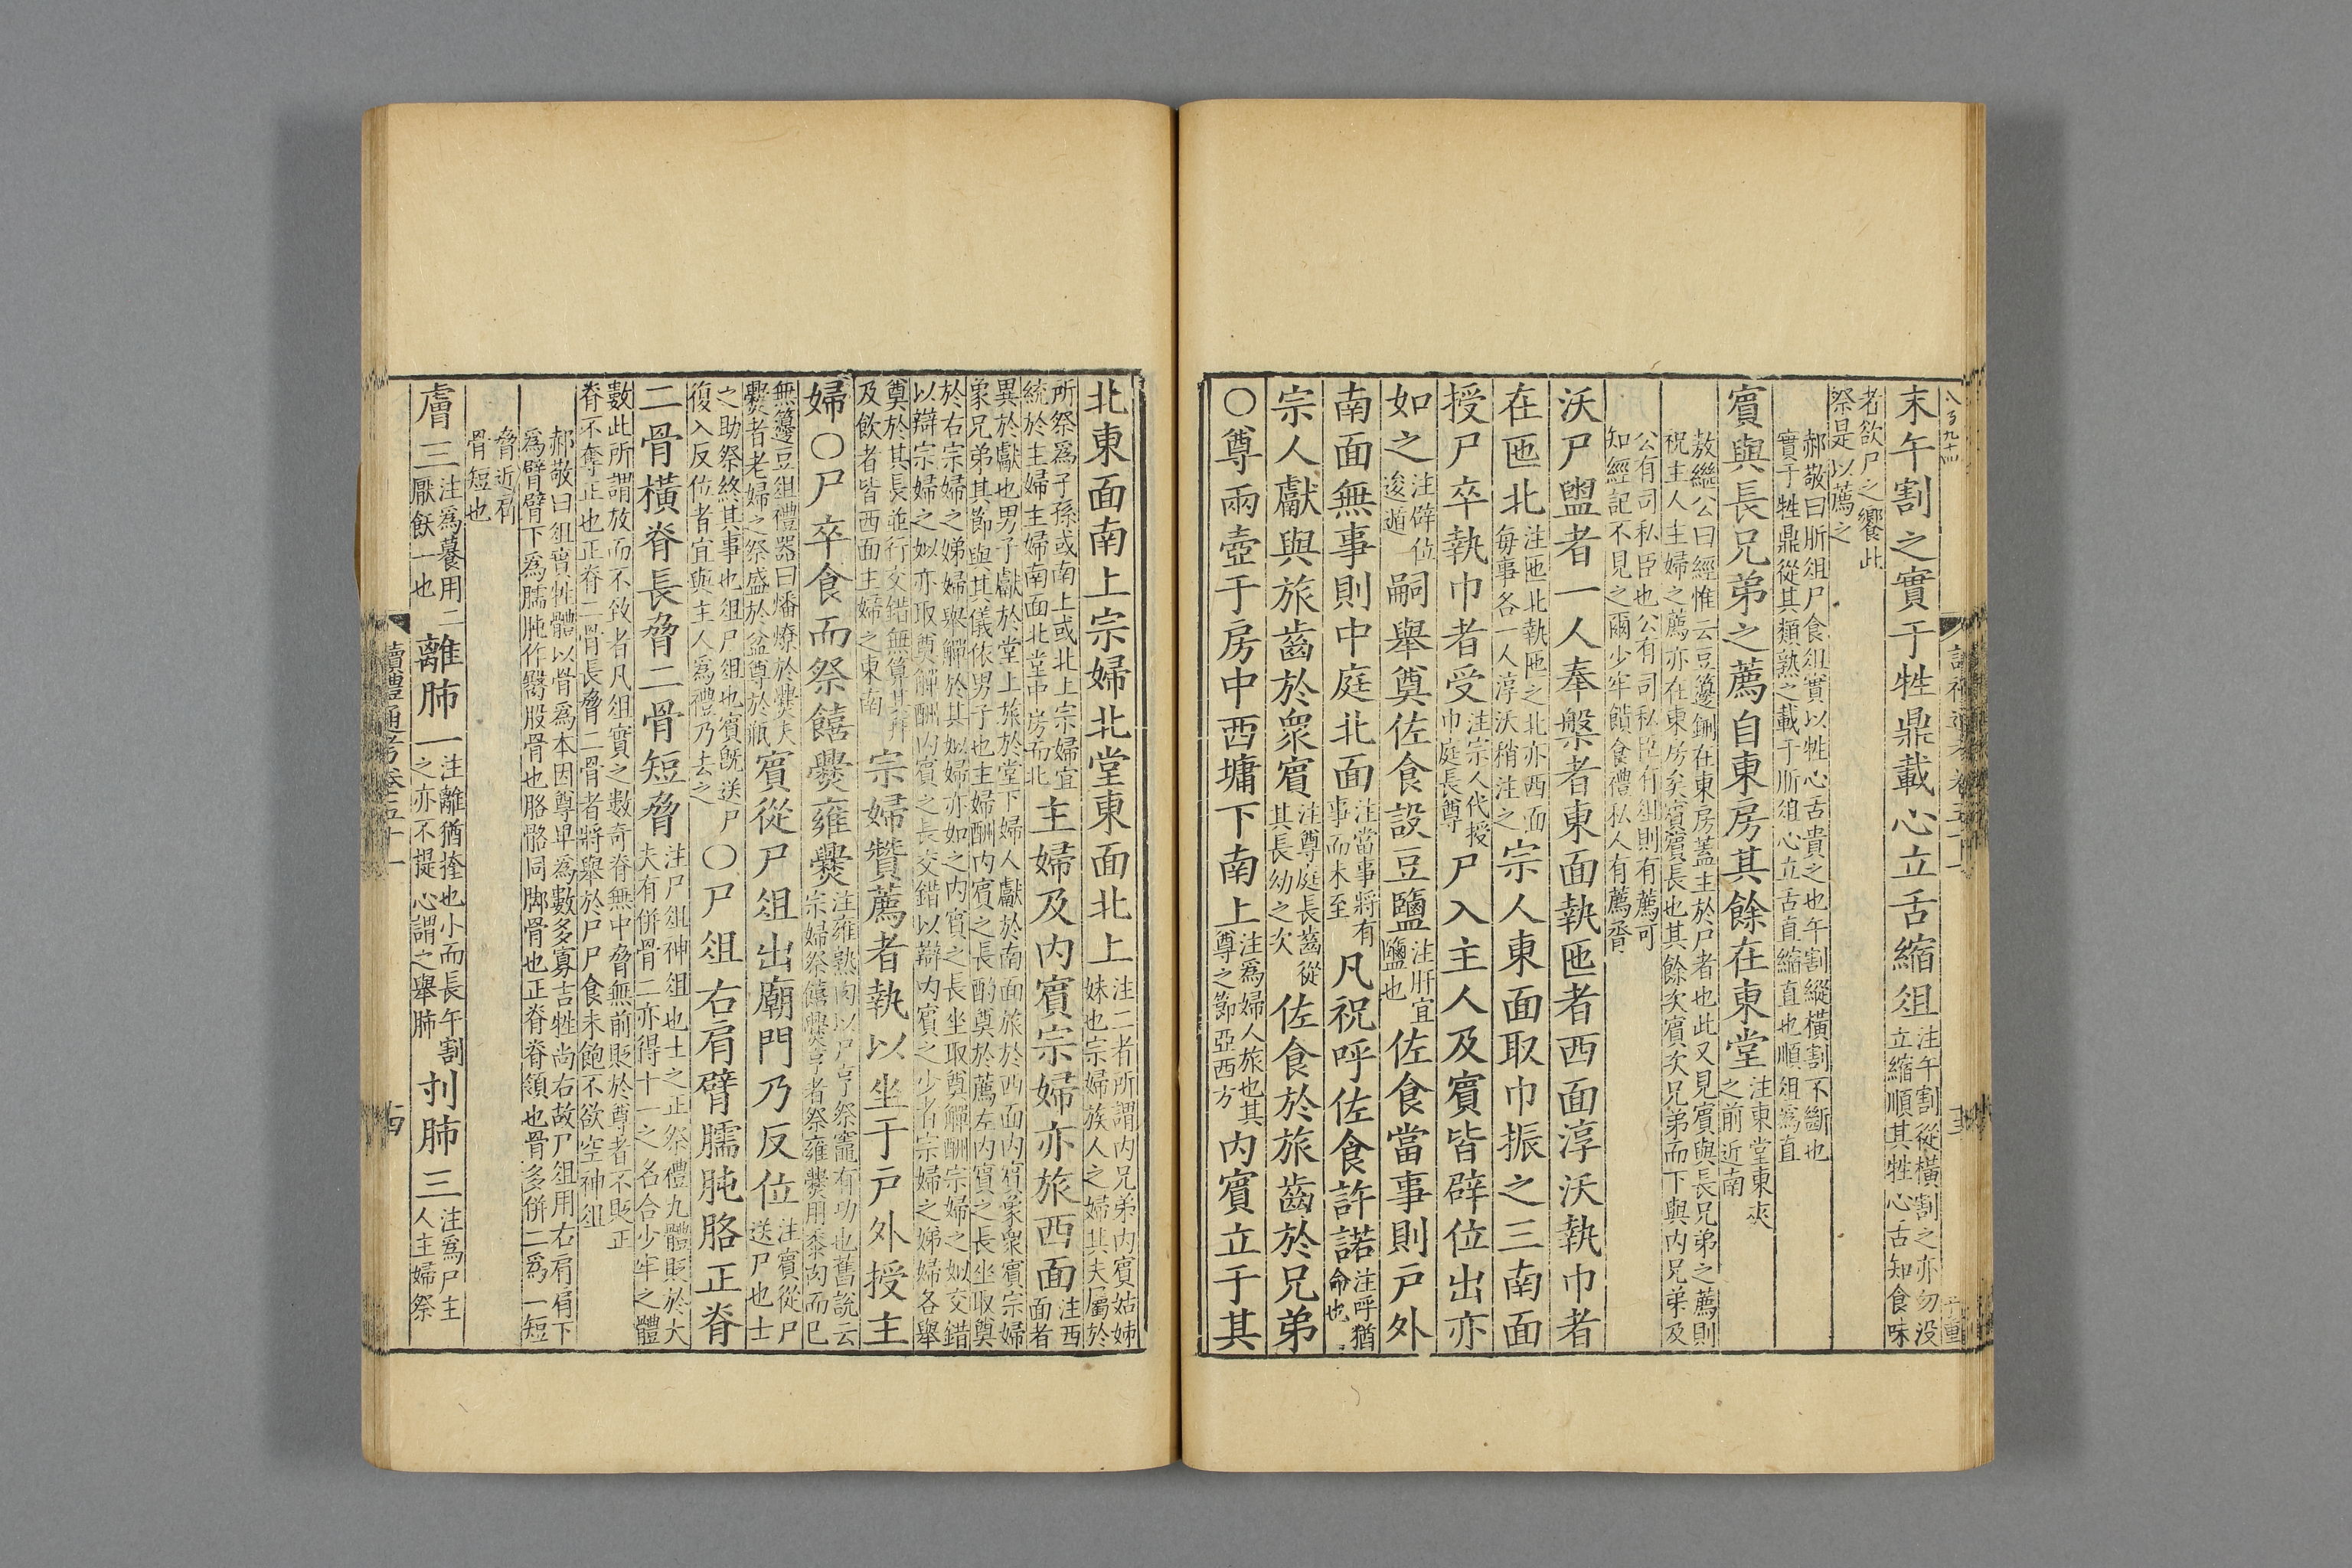 讀禮通考卷五十一
末午割之實于牲鼎載心立舌縮俎注午割從橫割之亦勿没
立縮順其牲心舌知食味
者欲尸之饗此
祭是以薦之
郝敬曰肵俎尸食俎實以牲心舌貴之也午割縱橫割不斷也
實于牲鼎從其類熟之載于肵俎心立舌直縮直也順俎爲直
賓與長兄弟之薦自東房其餘在東堂注東堂東夾
之前近南
敖繼公曰經惟云豆籩鉶在東房蓋主於尸者也此又見賓與長兄弟之薦則
祝主人主婦之薦亦在東房矣賓賓長也其餘次賓次兄弟而下與内兄弟及
公有司私臣也公有司私臣有俎則有薦可
知經記不見之爾少牢饋食禮私人有薦脀
沃尸盥者一人奉槃者東面執匜者西面淳沃執巾者
在匜北注匜北執匜之北亦西面
每事各一人淳沃稍注之宗人東面取巾振之三南面
授尸卒執巾者受注宗人代授
巾庭長尊尸入主人及賓皆辟位出亦
如之注辟位
逡遁嗣舉奠佐食設豆鹽注肝宜
鹽也佐食當事則戶外
南面無事則中庭北面注當事將有
事而未至凡祝呼佐食許諾注呼猶
命也
宗人獻與旅齒於衆賓注尊庭長齒從
其長幼之次佐食於旅齒於兄弟
○尊兩壺于房中西墉下南上注爲婦人旅也其
尊之節亞西方内賓立于其
北東面南上宗婦北堂東面北上注二者所謂内兄弟内賓姑姊
妹也宗婦族人之婦其夫屬於
所祭爲子孫或南上或北上宗婦宜
統於主婦主婦南面北堂中房而北主婦及内賓宗婦亦旅西面注西
面者
異於獻也男子獻於堂上旅於堂下婦人獻於南面旅於西面内賓象衆賓宗婦
象兄弟其節與其儀依男子也主婦酬内賓之長酌奠於薦左内賓之長坐取奠
於右宗婦之娣婦舉觶於其姒婦亦如之内賓之長坐取奠觶酬宗婦之姒交錯
以辯宗婦之姒亦取奠觶酬内賓之長交錯以辯内賓之少者宗婦之娣婦各舉
奠於其長並行交錯無算其拜
及飲者皆西面主婦之東南宗婦贊薦者執以坐于戶外授主
婦○尸卒食而祭饎爨雍爨注雍熟肉以尸亨祭竈有功也舊說云
宗婦祭饎爨亨者祭雍爨用黍肉而已
無籩豆俎禮器曰燔燎於爨夫
爨者老婦之祭盛於盆尊於瓶賓從尸俎出廟門乃反位注賓從尸
送尸也士
之助祭終其事也俎尸俎也賓旣送尸
復入反位者宜與主人爲禮乃去之○尸俎右肩臂臑肫胳正脊
二骨橫脊長脅二骨短脅注尸俎神俎也士之正祭禮九體貶於大
夫有併骨二亦得十一之名合少牢之體
數此所謂放而不致者凡俎實之數奇脊無中脅無前貶於尊者不貶正
脊不奪正也正脊二骨長脅二骨者將舉於尸尸食未飽不欲空神俎
郝敬曰俎實牲體以骨爲本因尊卑爲數多寡吉牲尚右故尸俎用右肩肩下
爲臂臂下爲臑肫作膞股骨也胳骼同脚骨也正脊脊領也骨多併二爲一短
脅近脅
骨短也
膚三注爲養用二
厭飫一也離肺一注離猶㧪也小而長午割
之亦不提心謂之舉肺刌肺三注爲尸主
人主婦祭
讀禮通考卷五十一